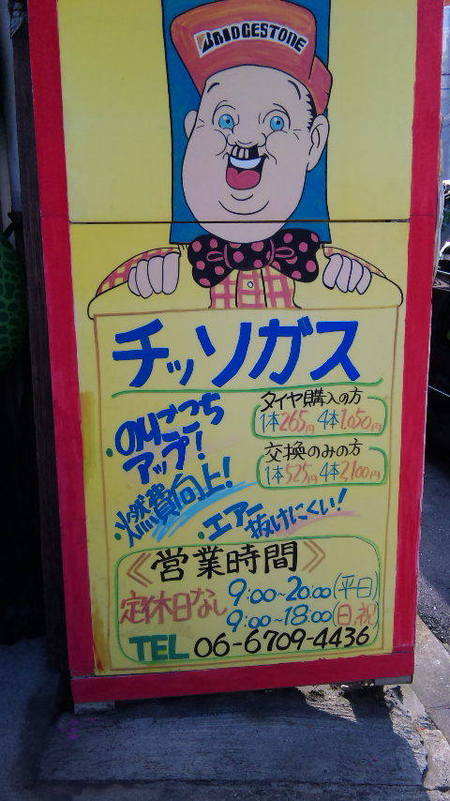 BRIDGESTONE
チッソガス
・のりごこち
アップ!
タイヤ購入の方
1本265円 4本1,050円
交換のみの方
1本525円 4本2,100円
・燃費向上!
・エアー
抜けにくい!
《営業時間》
定休日なし
9:00~20:00(平日)
9:00~18:00(日,祝)
TEL 06-6709-4436